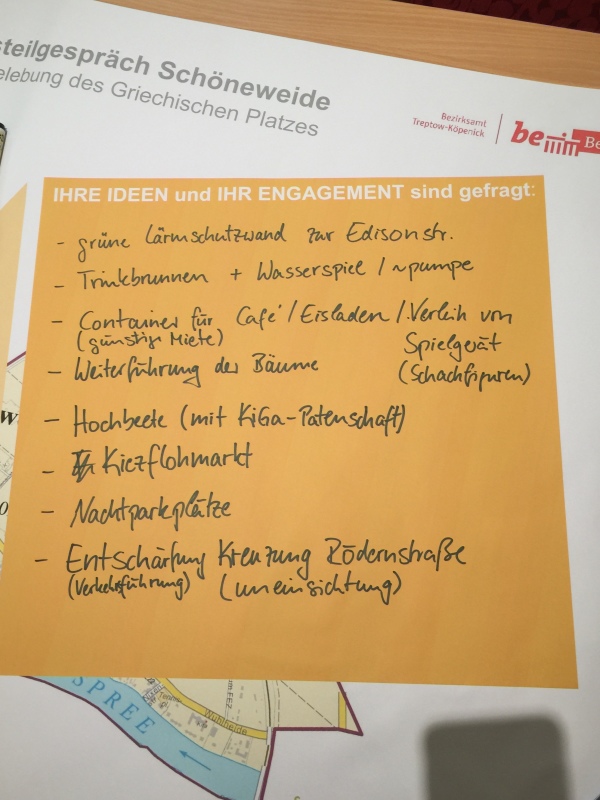 steilgespräch Schöneweide
elebung des Griechischen Platzes
Bezirksamt
Treptow-Köpenick
be
Be
IHRE IDEEN und IHR ENGAGEMENT sind gefragt:
- grüne Lärmschutzwand zur Edisonstr.
- Trinkbrunnen + Wasserspiel / ~pumpe
- Container für Café / Eisladen / Verleih von
(günstige Miete) Spielgerät
- Weiterführung der Bäume (Schachfiguren)
- Hochbeete (mit KiGa-Patenschaft)
- Kiezflohmarkt
- Nachtparkplätze
- Entschärfung Kreuzung Rödernstraße
(Verkehrsführung) (uneinsichtung)
W
SPREE
Wuhlheide